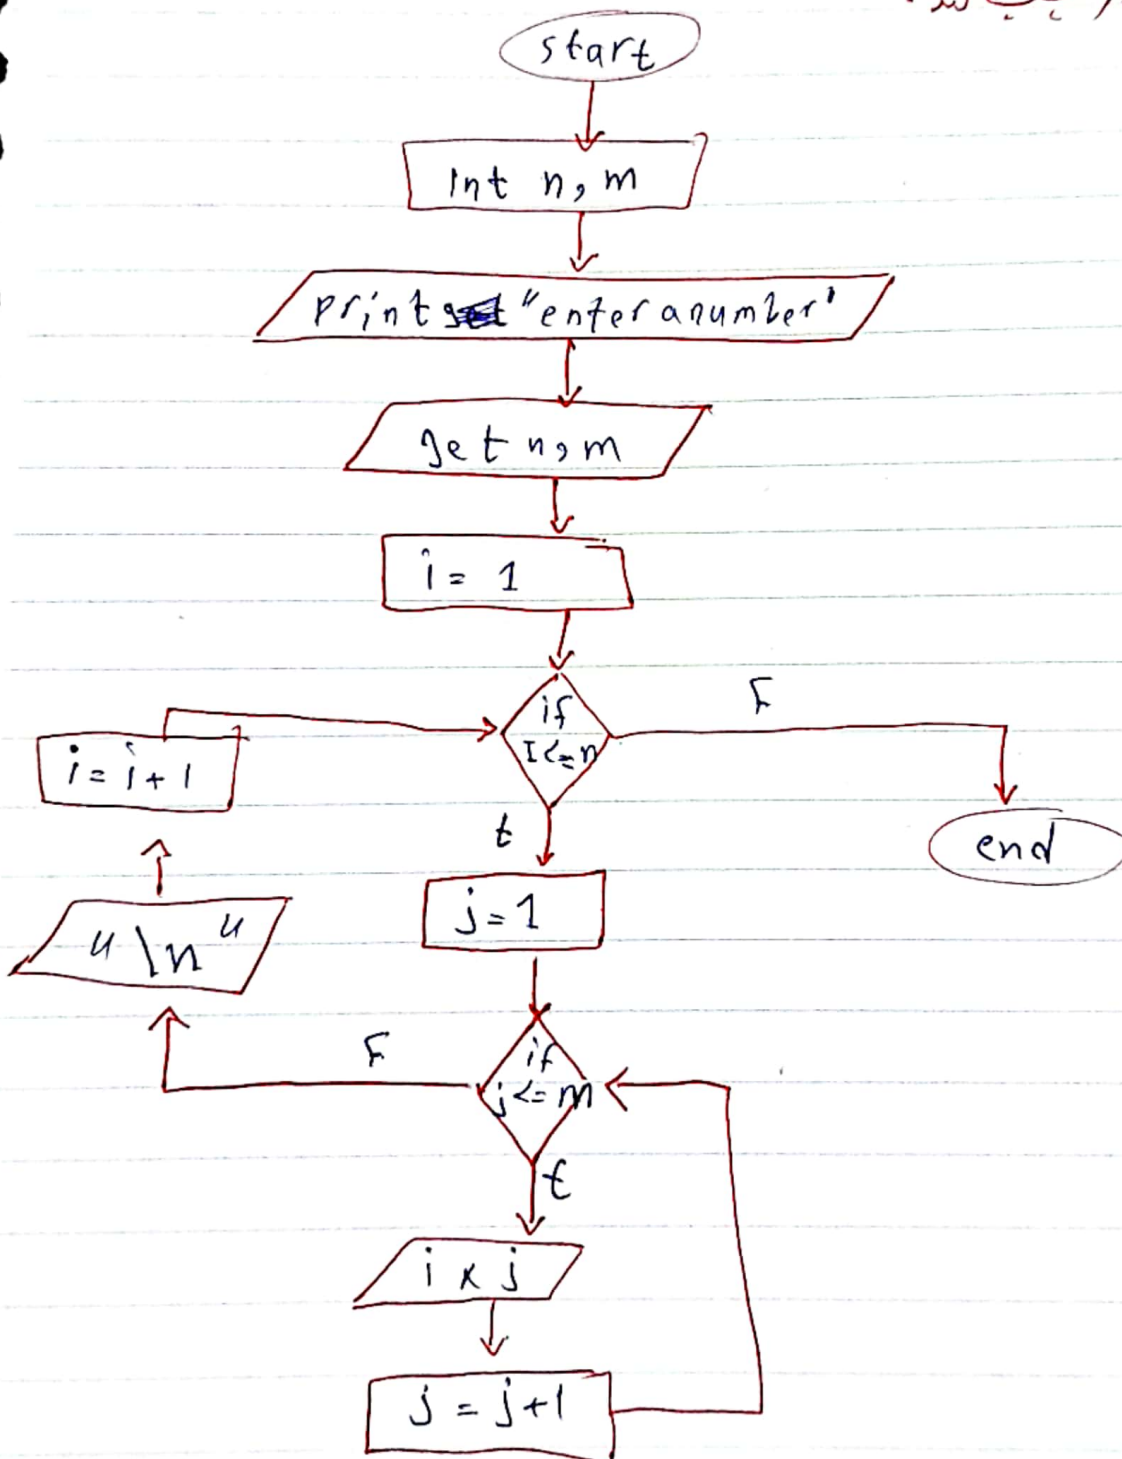 start
Int n, m
print "enter a number"
get n, m
i = 1
if
I<=n
F
i = i + 1
t
end
j = 1
"\n"
if
j <= m
F
t
i x j
j = j+1